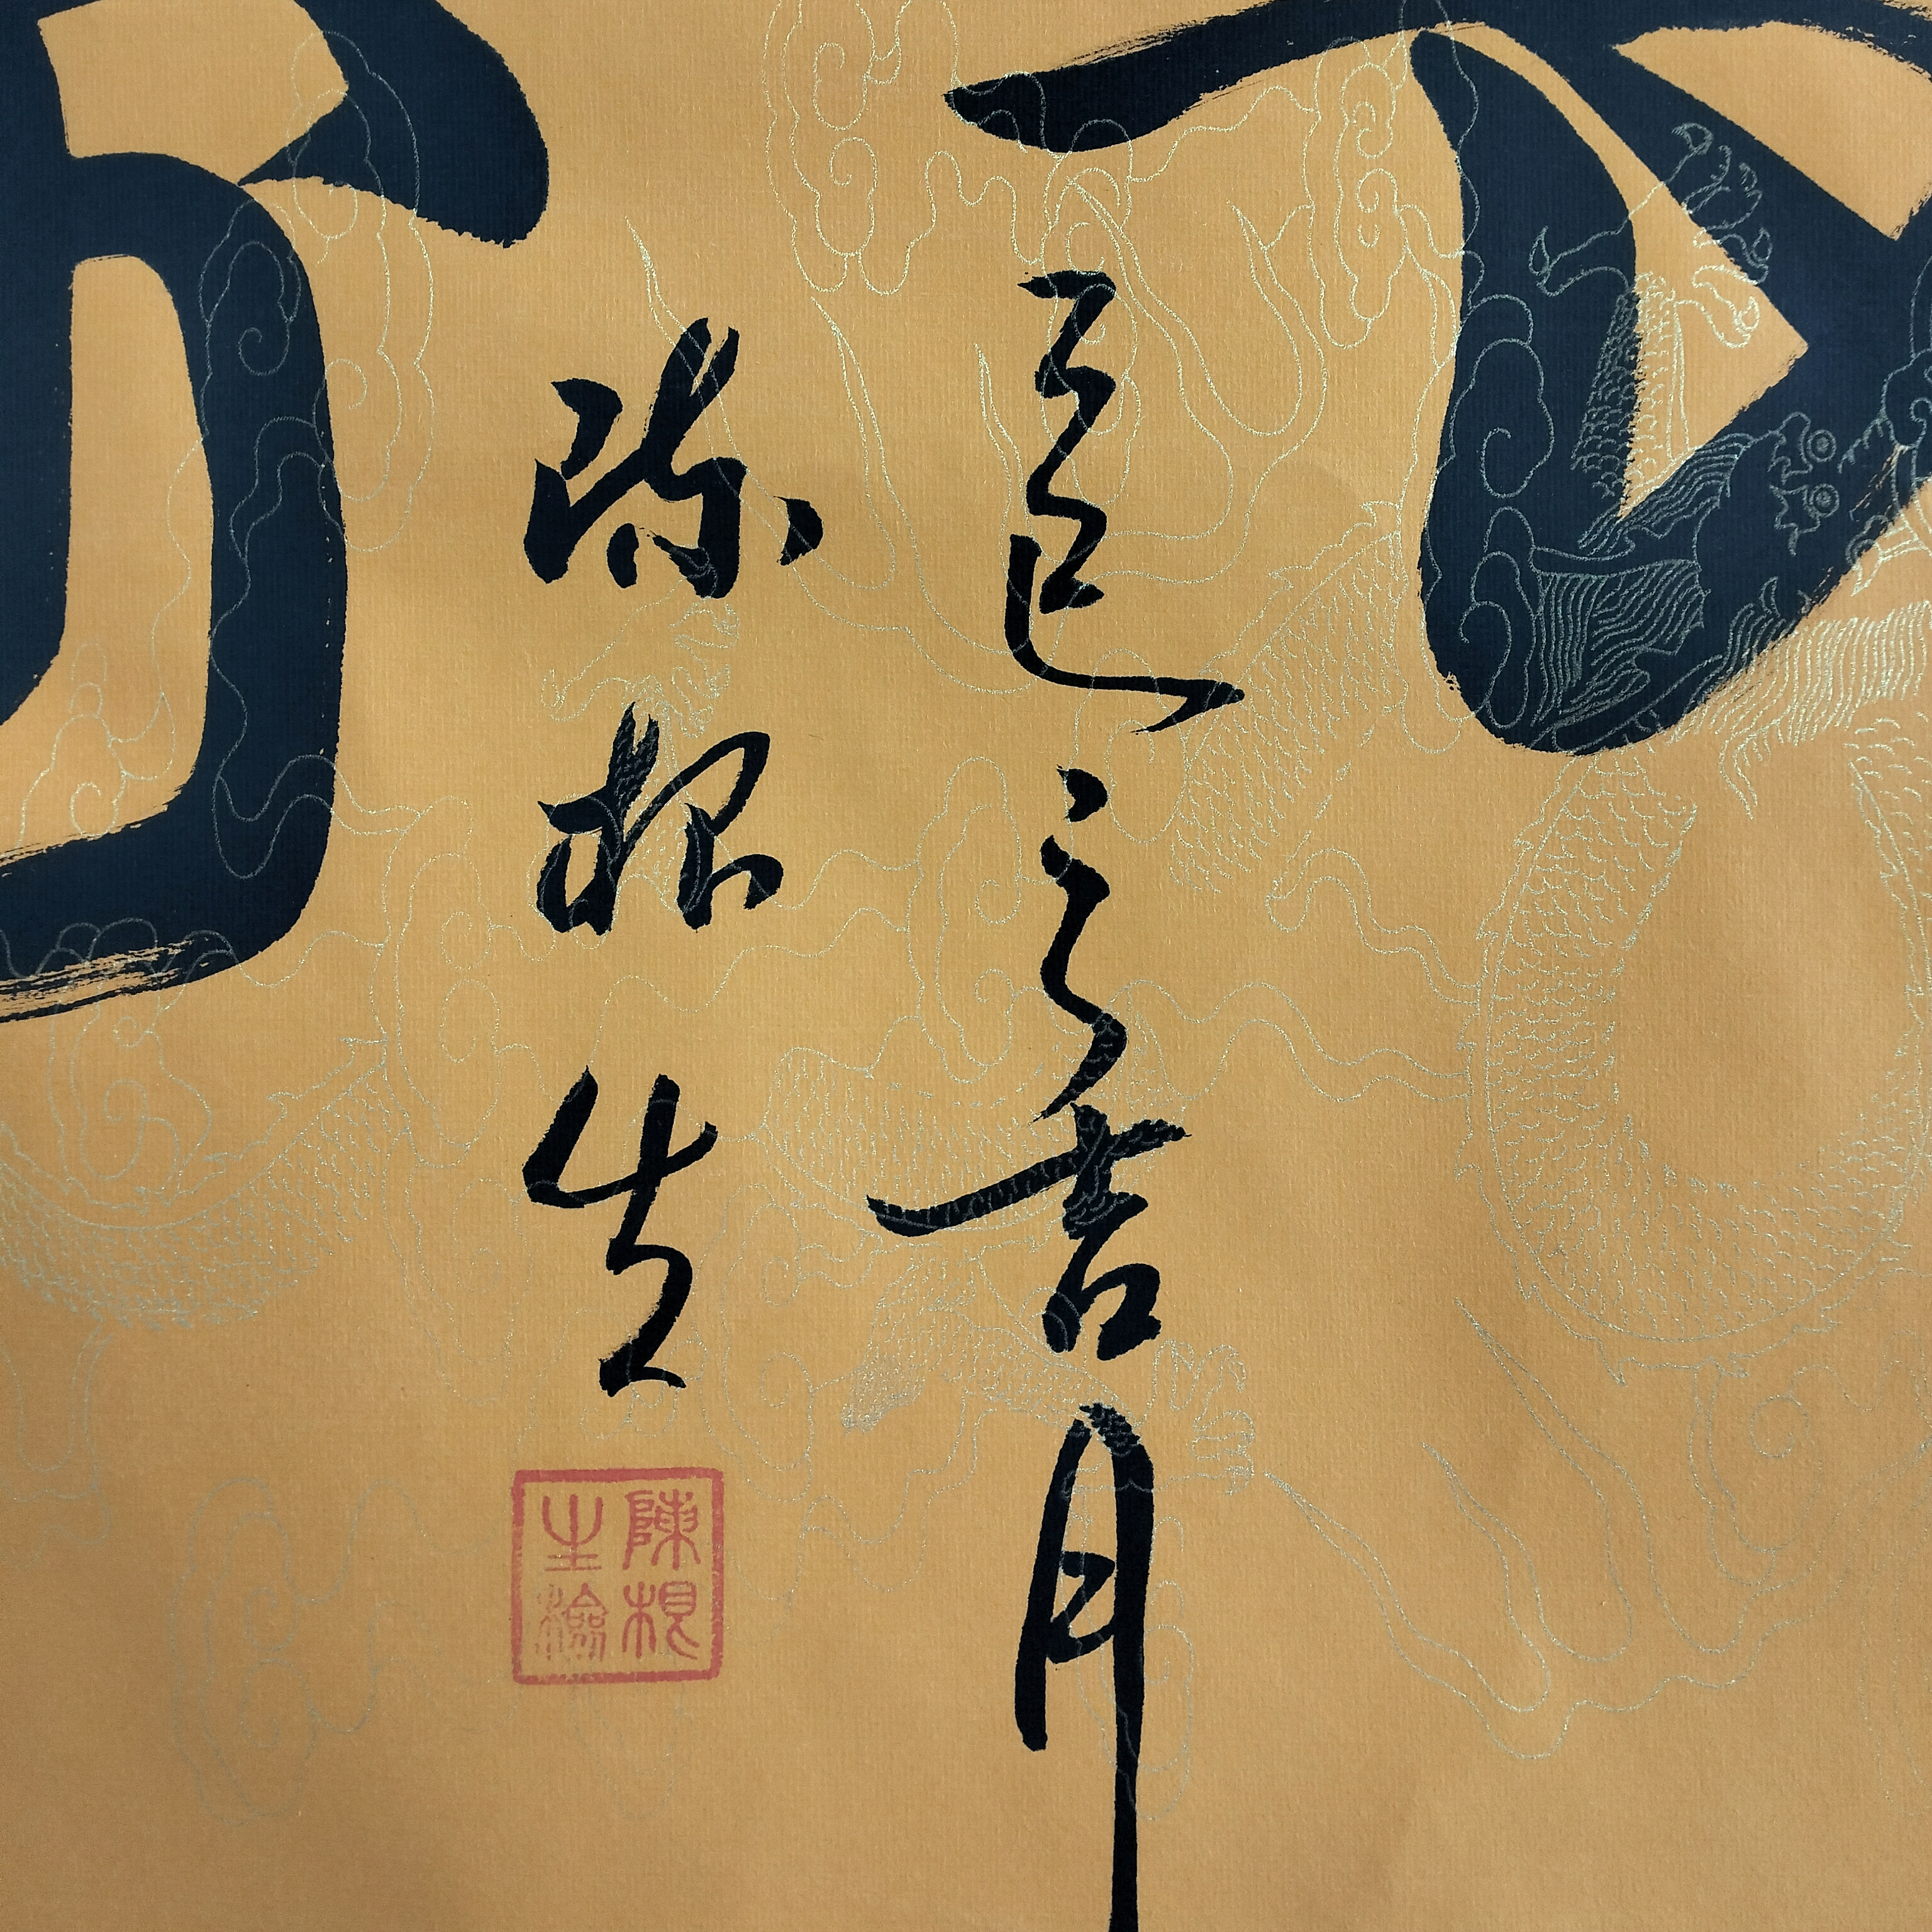 乙巳之吉月
陈根生
陳根
生